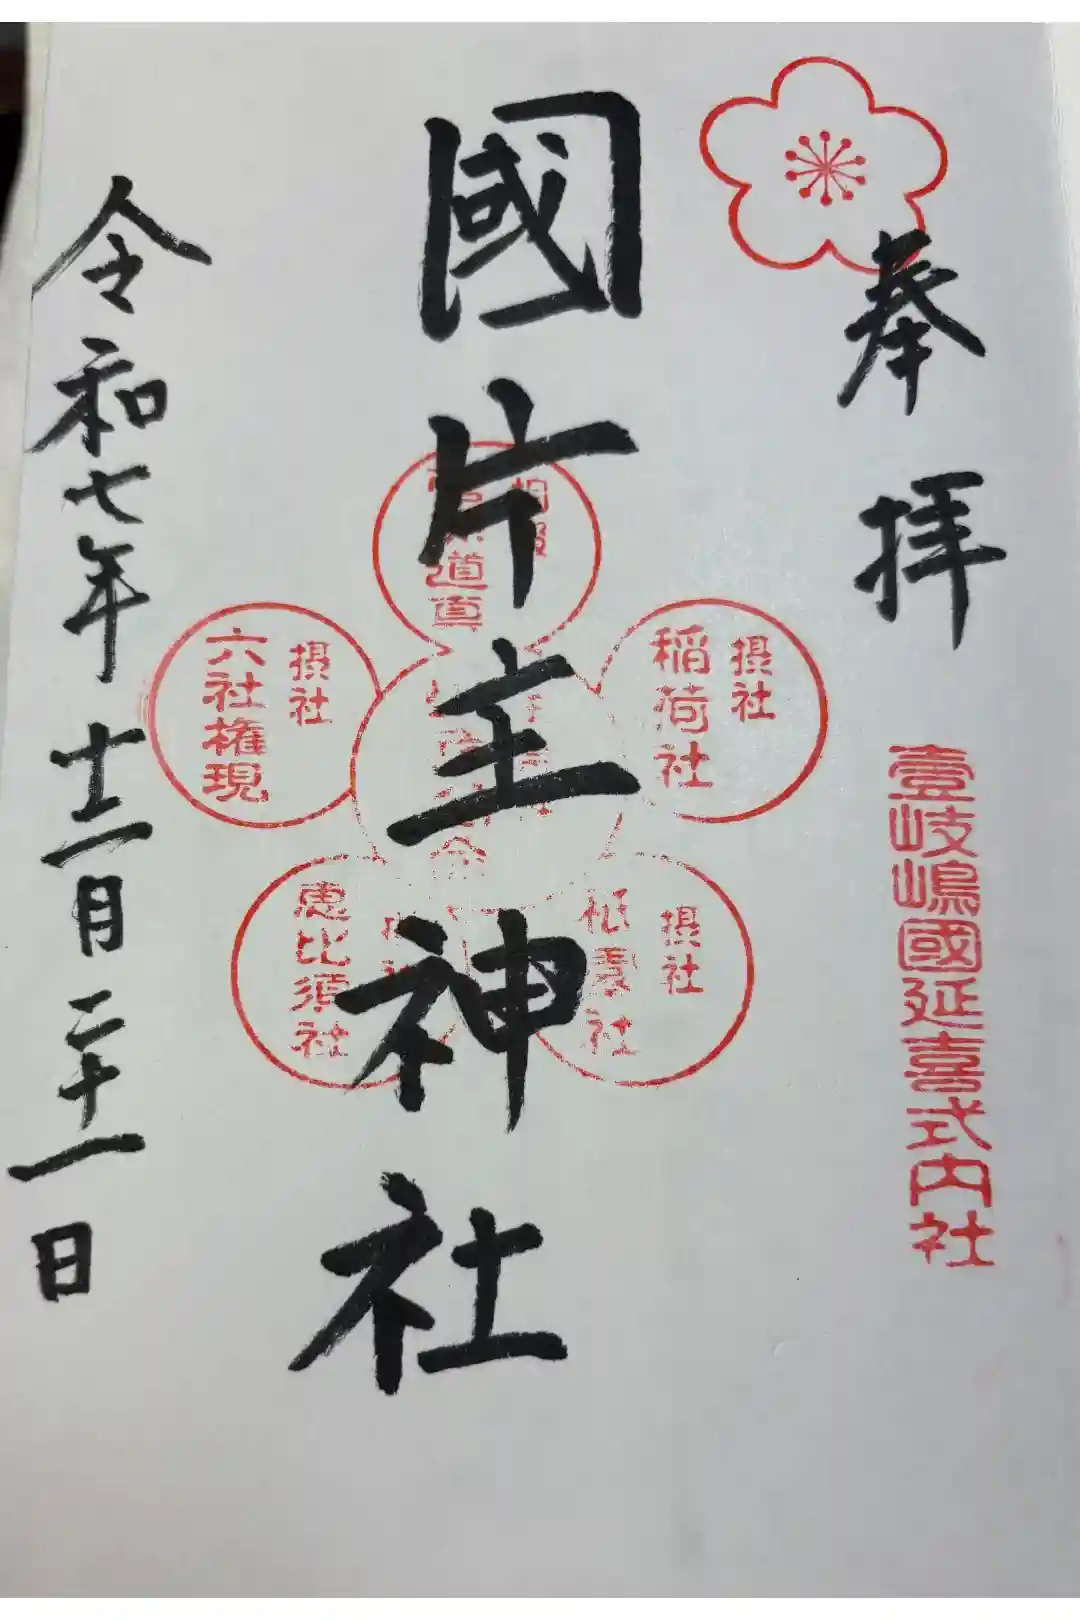 奉拝
壹岐嶋國延喜式内社
國片主神社
摂社
稲荷社
道真
摂社
六社権現
摂社
祇園社
恵比須社
令和七年十二月二十一日